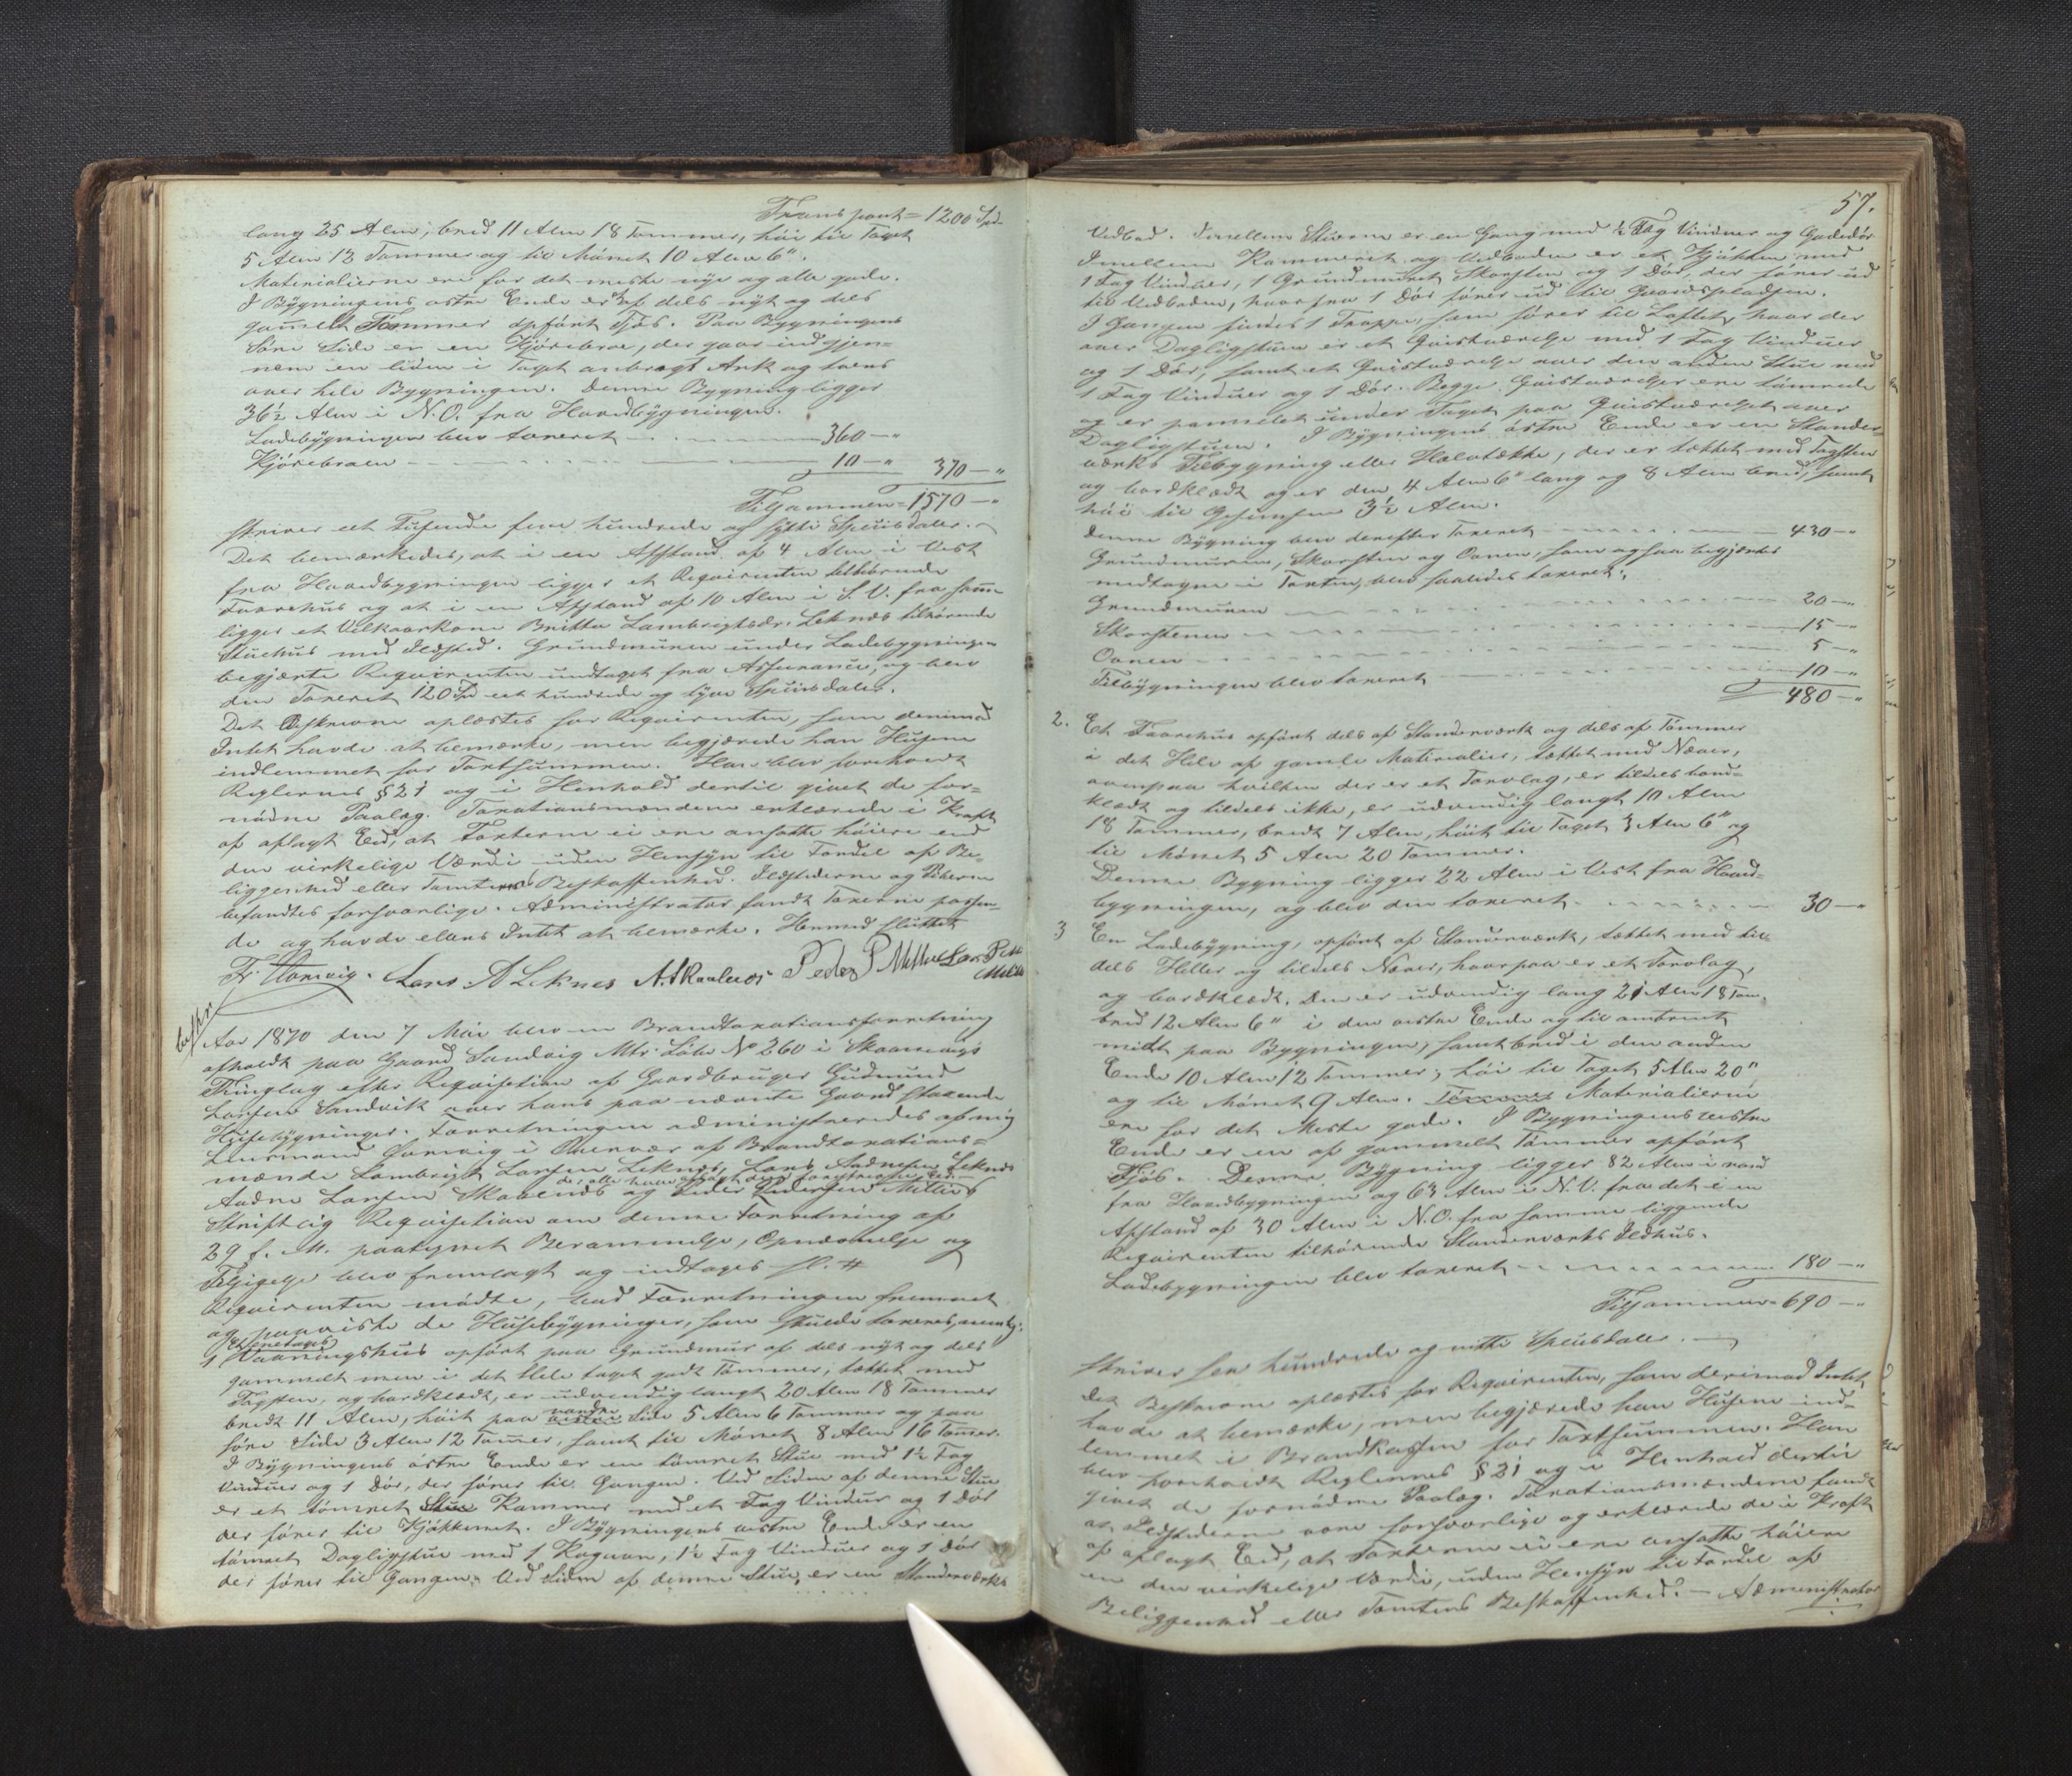 Transport = 1200 Spd.
lang 25 Alen, bred 11 Alen 18 Tommer, høi til Taget
5 Alen 12 Tommer og til Mønet 10 Alen 6".
Materialierne ere for det meste nye og alle gode.
I Bygningens østre Ende er af dels nyt og dels
gammelt Tømmer opført Fjøs. Paa Bygningens
søre Side er en Kjørebroe, der gaar ind gjen-
nem en liden i Taget anbragt Ark og tvers
over hele Bygningen. Denne Bygning ligger
36½ Alen i N.O. fra Hovedbygningen.
Ladebygningen blev taxeret 360 — "
Kjørebroen 10 — " 370 — "
Tilsammen = 1570 — "
skriver eet Tusende fem hundrede og sytti Speciedaler.
Det bemærkedes, at i en Afstand af 4 Alen i Vest
fra Hovedbygningen ligger et Requirenten tilhørende
Faarehus og at i en Afstand af 10 Alen i S.V. fra samme
ligger et Vilkaarkone Britta Lambrigtsdr. Leknes tilhørende
Stuehus med Ildsted. Grundmuren under Ladebygningen
begjærte Requirenten undtaget fra Assurance, og blev
den Taxeret 120 Spd eet hundrede og tyve Speciedaler.
Det Beskrevne oplæstes for Requirenten, som derimod
Intet havde at bemærke, men begjærede han Husene
indlemmet for Taxtsummen. Han blev foreholdt
Reglernes § 21 og i Henhold dertil givet de for-
nødne Paalæg. Taxationsmændene erklærede i Kraft
af aflagt Eed, at Taxterne ei ere ansatte høiere end
den virkelige Værdi uden Hensyn til Fordel af Be-
liggenhed eller Tomtens Beskaffenhed. Ildstederne og Piberne
befandtes forsvarlige. Administrator fandt Taxerne passen-
de og havde ellers Intet at bemærke. Hermed sluttet
Lars A Leknes Peder P Lars
Aar 1870 den 7 Mai blev en Brandtaxationsforretning
afholdt paa Gaard Sandvig Mtr. Løbe No 260 i
Thinglag efter Requisition af Gaardbruger Gudmund
Larsen Sandvik over hans paa nævnte Gaard staaende
Husebygninger. Forretningen administreredes af mig
Lensmand i Overvær af Brandtaxations-
mænde Lambrigt Larsen Leknes, Lars Andersen Leknes
de, alle have aflagt
Larsen og Peder Pedersen
Skriftlig Requisition om denne Forretning af
29 f. M. paategnet Berammelse, Opnævnelse og
blev fremlagt og indtages sl. #
Requirenten mødte, bad Forretningen fremmet
og paaviste de Husebygninger, som skulde taxeres, nemlig:
Eenetages
1 Vaaningshus opført paa Grundmur af dels nyt og dels
gammelt men i det Hele taget godt Tømmer, tættet med
Tagsten, og bordklædt, er udvendig langt 20 Alen 18 Tommer
nordre
bredt 11 Alen, høit paa Side 5 Alen 6 Tommer og paa
søre Side 3 Alen 12 Tommer, samt til Mønet 8 Alen 16 Tommer.
I Bygningens østre Ende er en tømret Stue med 1½ Fag
Vinduer og 1 Dør, der fører til Gangen. Ved Siden af denne Stue
er et tømret Stue Kammer med et Fag Vinduer og 1 Dør
der fører til Kjøkkenet. I Bygningens vestre Ende er en
tømret Dagligstue med 1 Kogeovn, 1½ Fag Vinduer og 1 Dør
der fører til Gangen. Ved Siden af denne Stue er en Standerværks
57.
Vedbod. Imellem Stuerne er en Gang med ½ Fag Vinduer og Gadedør
Imellem Kammeret og Vedboden er et Kjøkken med
1 Fag Vinduer, 1 Grundmuret Skorsten og 1 Dør, der fører ud
til Vedboden, hvorfra 1 Dør fører ud til Gaardspladsen.
I Gangen findes 1 Trappe, som fører til Loftet, hvor der
over Dagligstuen er et Qvistværelse med 1 Fag Vinduer
og 1 Dør, samt et Qvistværelse over den anden Stue med
1 Fag Vinduer og 1 Dør. Begge Qvistværelser ere tømrede
og er pannelet under Taget paa Qvistværelset over
Dagligstuen. I Bygningens østre Ende er en Stander-
værks Tilbygning eller Halvtække, der er tættet med Tagsten
og bordklædt og er den 4 Alen 6" lang og 8 Alen bred, samt
høi til Gesimsen 3½ Alen.
Denne Bygning blev derefter Taxeret 430 — "
Grundmuren, Skorsten og Ovnen, som ogsaa begjærtes
medtagne i Taxten, blev saaledes taxeret:
Grundmuren 20 — "
Skorstenen 15 — "
Ovnen 5 — "
Tilbygningen blev taxeret 10 — "
480 — "
2. Et Faarehus opført dels af Standerværk og dels af Tømmer
i det Hele af gamle Materialier, tættet med Næver,
ovenpaa hvilken der er et Torvlag, er tildels bord-
klædt og tildels ikke, er udvendig langt 10 Alen
18 Tommer, bredt 7 Alen, høit til Taget 3 Alen 6" og
til Mønet 5 Alen 20 Tommer.
Denne Bygning ligger 22 Alen i Vest fra Hoved-
bygningen, og blev den taxeret 30 — "
3 En Ladebygning, opført af Standerværk, tættet med til-
dels Heller og tildels Næver, hvorpaa er et Torvlag,
og bordklædt. Den er udvendig lang 21 Alen 18 Tom.
bred 12 Alen 6" i den vestre Ende og til omtrent
midt paa Bygningen, samt bred i den anden
Ende 10 Alen 12 Tommer; høi til Taget 5 Alen 20"
og til Mønet 9 Alen. Tømmer Materialierne
ere for det Meste gode. I Bygningens vestre
Ende er en af gammelt Tømmer opført
Fjøs. Denne Bygning ligger 82 Alen i nord
fra Hovedbygningen og 63 Alen i N.V. fra det i en
Afstand af 30 Alen i N.O. fra samme liggende
Requirenten tilhørende Standerværks Ildhus.
Ladebygningen blev taxeret 180 — "
Tilsammen = 690 — "
skriver sex hundrede og nitti Speciedaler.
Det Beskrevne oplæstes for Requirenten, som derimod Intet
havde at bemærke, men begjærede han Husene ind-
lemmet i Brandkassen for Taxtsummen. Han
blev foreholdt Reglernes § 21 og i Henhold dertil
givet de fornødne Paalæg. Taxationsmændene fandt
at Ildstederne vare forsvarlige og erklærede de i Kraft
af aflagt Eed, at Taxterne ei ere ansatte høiere
en den virkelige Værdi, uden Hensyn til Fordel af
Beliggenhed eller Tomtens Beskaffenhed. — Administrator